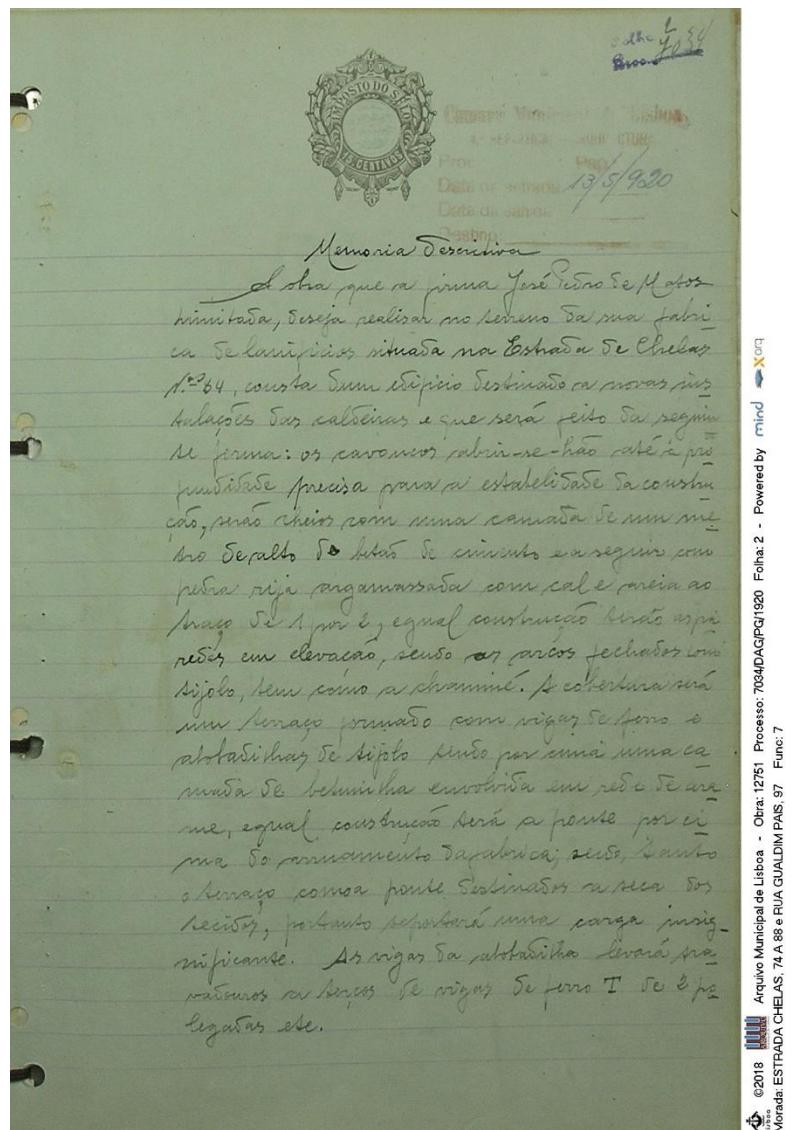 Folha 2
Proc. 7034
IMPOSTO DO SELO
15 CENTAVOS
Camara Municipal de Lisboa
4ª REPARTIÇÃO
Proc. Pag.
Data de entrada 13/5/920
Data da saida
Destino
Memoria Descritiva
A obra que a firma José Pedro de Matos
Limitada, deseja realisar no terreno da sua fabri-
ca de lanificios situada na Estrada de Chelas
Nº 64, consta dum edificio destinado a novas ins-
talações das caldeiras e que será feito da seguin-
te forma: os cavoucos abrir-se-hão até á pro
fundidade precisa para a estabelidade da constru
ção, serão cheios com uma camada de um me
tro de alto de betão de cimento e a seguir com
pedra rija argamassada com cal e areia ao
traço de 1 por 2, egual construção terão as pa
redes em elevação, sendo os arcos fechados com
tijolo, bem como a chaminé. A cobertura será
um terraço formado com vigas de ferro e
abobadilhas de tijolo tendo por cima uma ca
mada de betunilha envolvida em rede de ara
me, egual construção terá a ponte por ci
ma do arruamento da fabrica; sendo, tanto
o terraço como a ponte destinados a seca dos
tecidos, portanto suportará uma carga insig-
nificante. As vigas da abobadilha levará tra
vadouros a terços de vigas de ferro T de 2 po
legadas etc.
©2018 Arquivo Municipal de Lisboa - Obra: 12751 Processo: 7034/DAG/PG/1920 Folha: 2 - Powered by mind xarq
Lisboa
Morada: ESTRADA CHELAS, 74 A 88 e RUA GUALDIM PAIS, 97 Func: 7